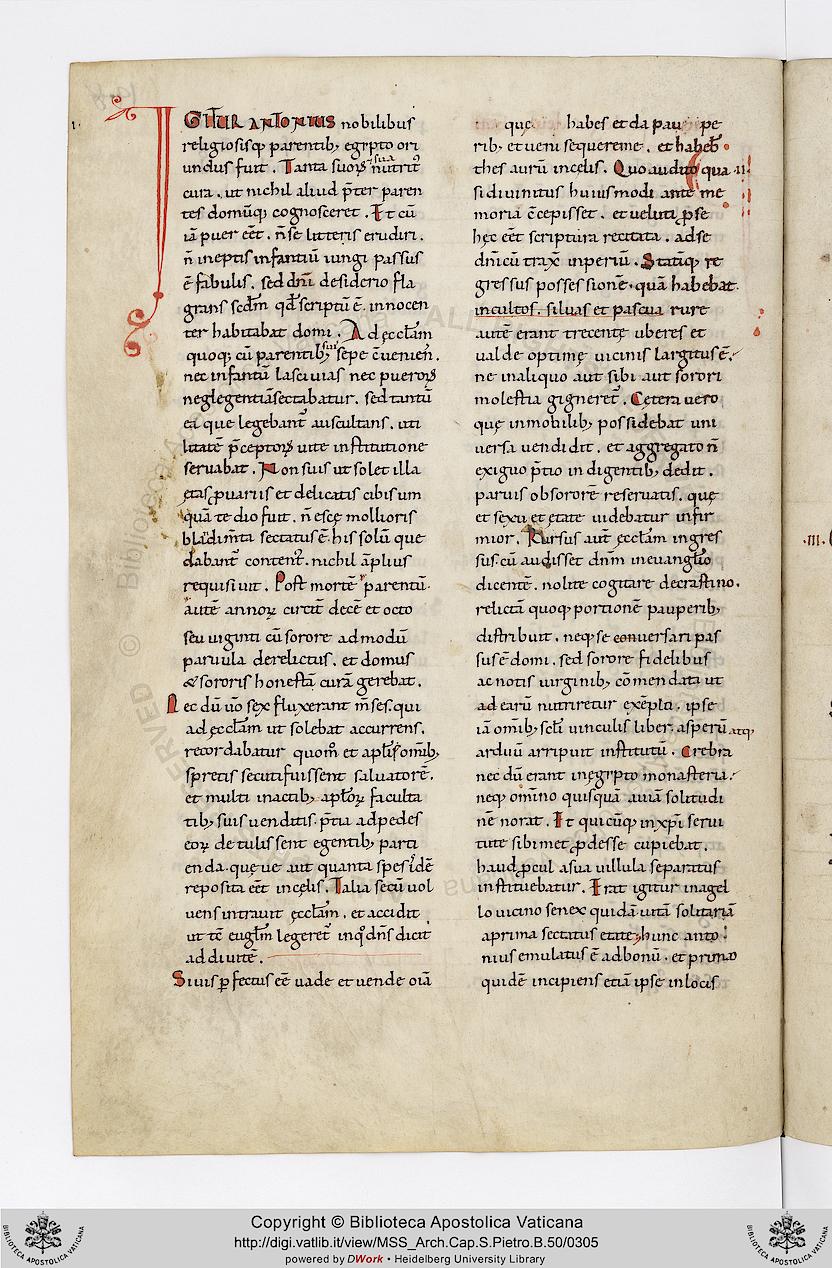 .I.
IGITUR ANTONIUS nobilibus
religiosisq; parentib; egypto ori
undus fuit . Tanta suoꝝ nutrit᷒
sua
cura . ut nichil aliud p̄ter paren
tes domūq; cognosceret . Et cū
iā puer eēt . ñ se litteris erudiri .
ñ ineptis infantiū iungi passus
ē fabulis . sed dn̄i desiderio fla
grans sedm̄ qd̄ scriptū ē . innocen
ter habitabat domi . Ad ęcclam̄
quoq; cū parentib; suis sepe c̄ ueniens̄ .
nec infantū lasciuias nec pueroꝝ
neglegentiā sectabatur . sed tantū
ea que legebant̄ auscultans . uti
litatē p̄ceptoꝝ uite institutione
seruabat . Non suis ut solet illa
ętas ꝓ uariis et delicatis cibis um
quā tedio fuit . ñ escę mollioris
blādim̄ta sectatus ē . his solū que
dabant̄ content᷒ . nichil āplius
requisiuit . Post mortē parentū .
autē annoꝝ circit̄ decē et octo
seu uiginti cū sorore admodū
paruula derelictus . et domus
& sororis honestā curā gerebat .
Nec dū u̅o sex fluxerant m̄ses . qui
ad ęcclam̄ ut solebat accurrens .
recordabatur quom̊ et apl̄is om̄ib;
spretis secuti fuissent saluatorē .
et multi in actib; apl̄oꝝ faculta
tib; suis uenditis . p̄tia ad pedes
eoꝝ detulissent egentib; parti
enda . que ue aut quanta spes idē
reposita eēt in cęlis . Talia secū uol
uens intrauit ęcclam̄ . et accidit
ut tē eugl̄m legeret̄ in q̊ dn̄s dicit
ad diuitē .
Si uis ꝑfectus eē uade et uende om̄ia
que habes et da pau pe
rib; et ueni sequere me . et habeb̄
thes aurū in cęlis . Quo audito qua
.II.
si diuinitus huiusmodi ante me
moriā c̄cepisset . et ueluti ꝓ se
hęc eēt scriptura recitata . ad se
dn̄icū trax̄ inperiū . Statiq; re
gressus possessionē . quā habebat .
incultos . siluas et pascua rure
autē erant trecentę uberes et
ualde optimę uicinis largitus ē .
ne in aliquo aut sibi aut sorori
molestia gigneret᷒ . Cetera uero
quę in mobilib; possidebat uni
uersa uendidit . et aggregato ñ
exiguo p̄tio indigentib; dedit .
paruis ob sororē reseruatis . quę
et sexu et ętate uidebatur infir
mior . Rursus aut̄ ęcclam̄ ingres
sus . cū audisset dn̄m in euanglio
dicentē . nolite cogitare de crastino .
relictā quoq; portionē pauperib;
distribuit . neq; se conuersari pas
sus ē domi . sed sorore fidelibus
ac notis uirginib; cōmendata ut
ad earū nutriretur exēpla . ipse
iā om̄ib; scl̄i uinculis liber . asperū atq;
arduū arripuit institutū . Crebra
nec dū erant in egypto monasteria .
neq; om̄ino quisquā auiā solitudi
nē norat . Et quicūq; in xp̄i serui
tute sibimet ꝓdesse cupiebat .
haud ꝓcul a sua uillula separatus
instituebatur . Erat igitur in agel
.III.
lo uicino senex quidā uitā solitariā
a prima sectatus etate . hunc anto
nius emulatus ē ad bonū . et primo
quidē incipiens etiā ipse in locis
Copyright © Biblioteca Apostolica Vaticana
http://digi.vatlib.it/view/MSS_Arch.Cap.S.Pietro.B.50/0305
powered by DWork • Heidelberg University Library
BIBLIOTECA APOSTOLICA VATICANA
BIBLIOTECA APOSTOLICA VATICANA